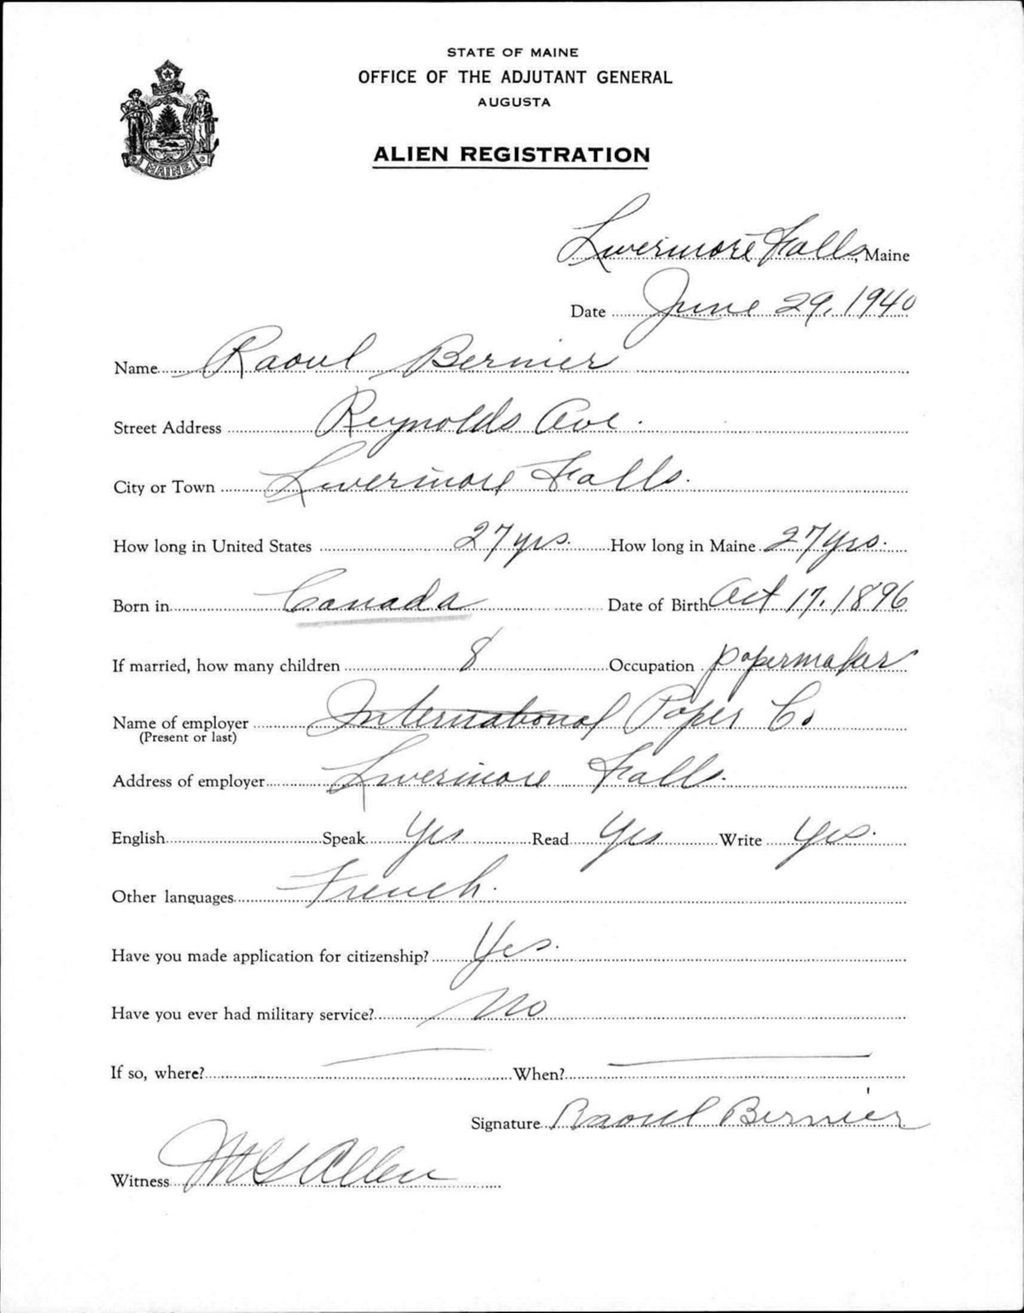 STATE OF MAINE
OFFICE OF THE ADJUTANT GENERAL
AUGUSTA
ALIEN REGISTRATION
MAINE
Livermore Falls, Maine
Date June 29, 1940
Name Raoul Bernier
Street Address Reynolds Ave.
City or Town Livermore Falls.
How long in United States 27 yrs. How long in Maine 27 yrs.
Born in Canada Date of Birth Oct 17, 1896
If married, how many children 8 Occupation papermaker
Name of employer International Paper Co.
(Present or last)
Address of employer Livermore Falls.
English Speak Yes Read Yes Write Yes.
Other languages French.
Have you made application for citizenship? Yes.
Have you ever had military service? No
If so, where? When?
Signature Raoul Bernier
Witness Allen